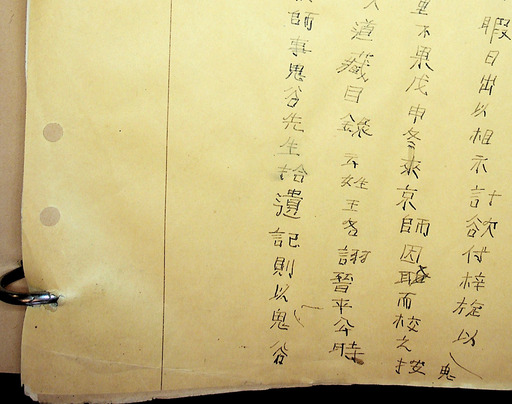 暇日出以相示計欲付梓旋以
里不果戊申冬來京師因取而校之按
道藏目錄云姓王名詡晉平公時
師事鬼谷先生拾遺記則以鬼谷
鬼